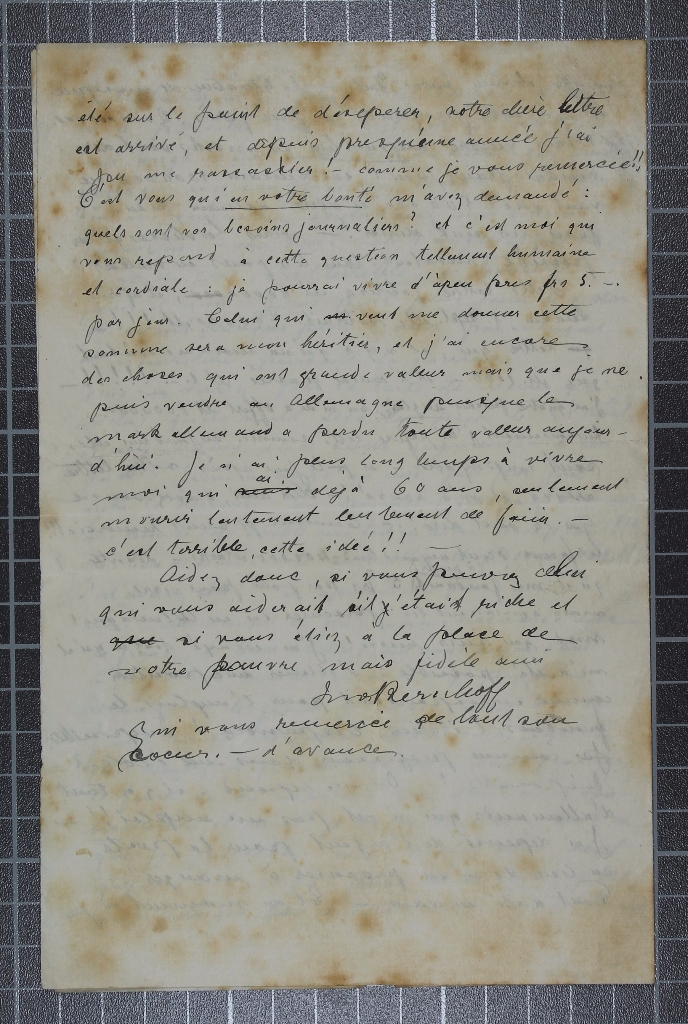 été sur le point de désesperer, votre chère lettre
est arrivé, et depuis presqu'une année j'ai
pu me rassasier! – comme je vous remercie!!
C'est vous qui en votre bonté m'avez demandé:
quels sont vos besoins journaliers? et c'est moi qui
vous repond à cette question tellement humaine
et cordiale: je pourrai vivre d'àpeu près frs 5. –.
par jour. Celui qui veut me donner cette
somme sera mon héritier, et j'ai encore
des choses qui ont grande valeur mais que je ne
puis vendre en Allemagne puisque le
mark allemand a perdu toute valeur aujour-
d'hui. Je n'ai plus longtemps à vivre
moi qui ai déjà 60 ans, seulement
mourir lentement lentement de faim. –
c'est terrible, cette idée!! –
Aidez donc, si vous pouvez celui
qui vous aiderait s'il était riche et
que si vous étiez à la place de
votre pauvre mais fidèle ami
Qui vous remercie de tout son
coeur. – d'avance.